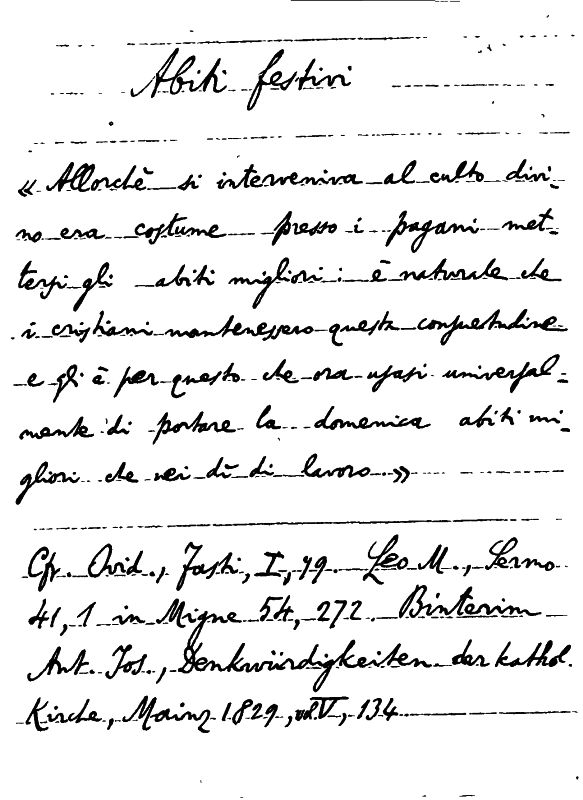 Abiti festivi
« Allorchè si interveniva al culto divi-
no era costume presso i pagani met-
tersi gli abiti migliori: è naturale che
i cristiani mantenessero questa consuetudine
e gli è per questo che ora usasi universal=
mente di portare la domenica abiti mi-
gliori che nei dì di lavoro.»
Cfr. Ovid., Fasti, I, 79. Leo M., Sermo
41, 1 in Migne 54, 272. Binterim
Ant. Jos., Denkwürdigkeiten der kathol.
Kirche, Mainz 1829, vol V, 134